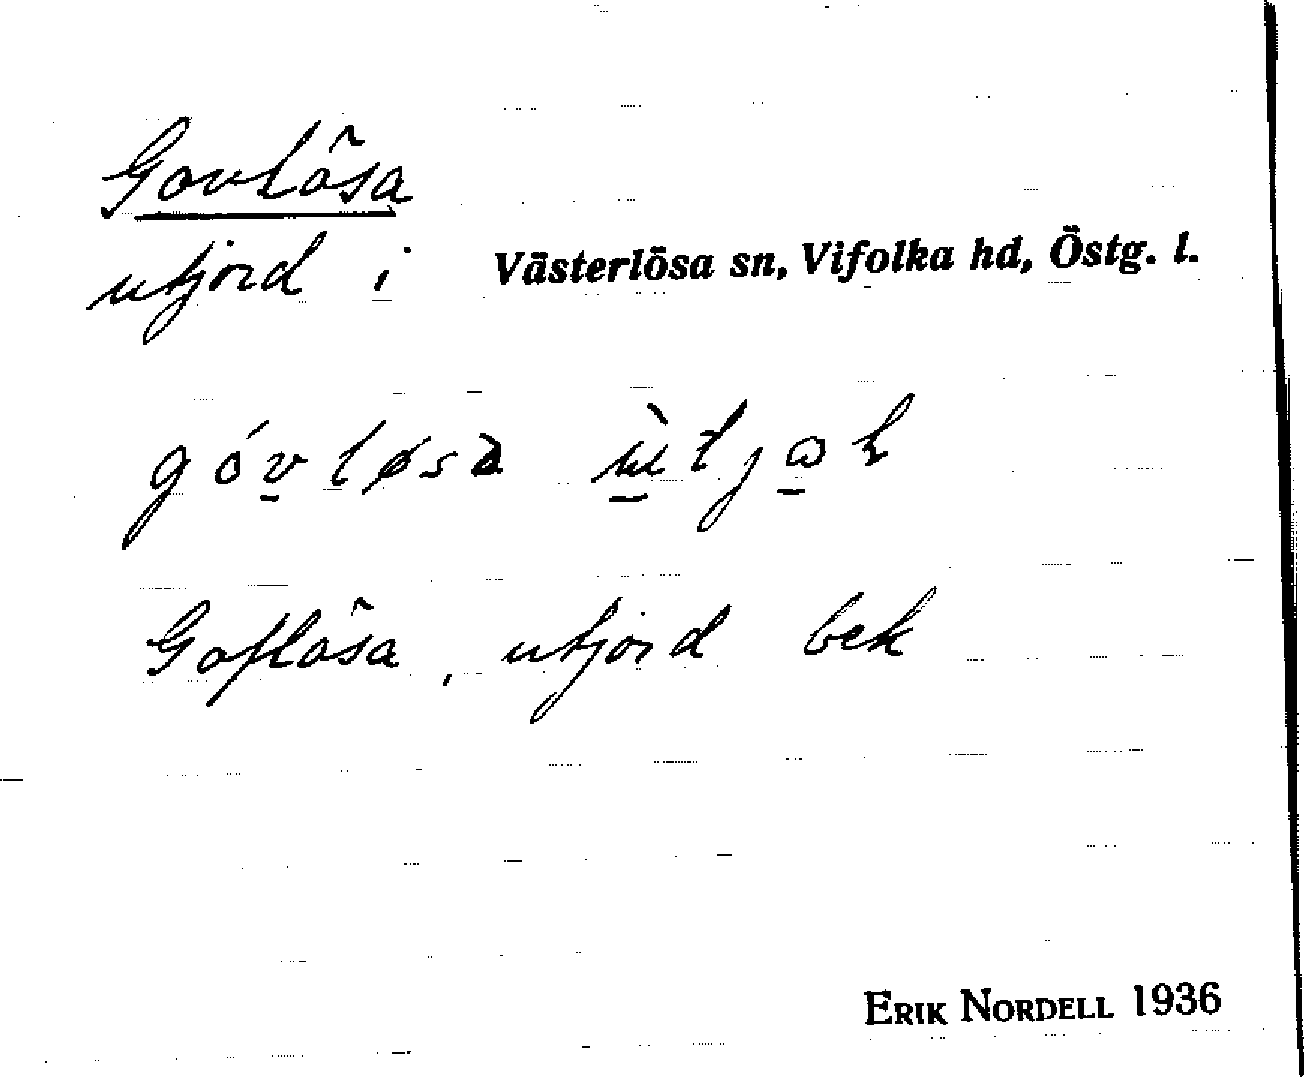 Govlösa
utjord i Västerlösa sn, Vifolka hd, Östg. l.
Goflösa, utjord bek
ERIK NORDELL 1936